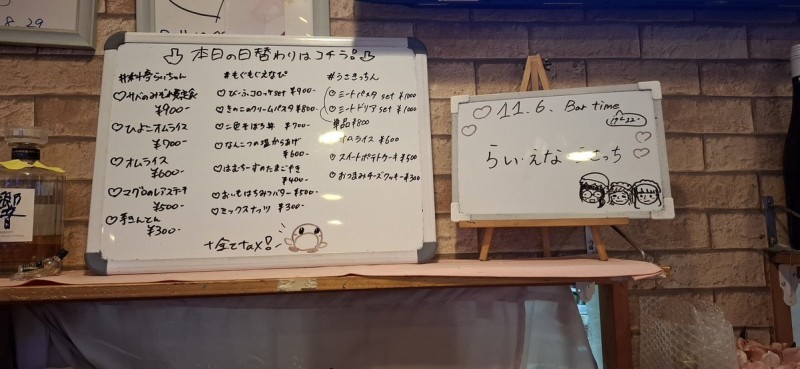 8.29
本日の日替わりはコチラ!
#料亭らいちゃん
♡サバのみそ煮定食
¥900-
♡ひよこオムライス
¥700-
♡オムライス
¥600-
♡マグロのレアステーキ
¥500-
¥300-
#もぐもぐえなぴ
♡びーふコロッケset ¥900-
♡きのこのクリームパスタ ¥800-
♡二色そぼろ丼 ¥700-
♡なんこつの塩からあげ
¥600-
♡はむちーずのたまごやき
¥400-
♡おいもはちみつバター ¥500-
♡ミックスナッツ ¥300-
#うこきっちん
♡ミートパスタ set ¥1000
♡ミートドリア set ¥1000
単品¥800
ムライス ¥600
♡スイートポテトケーキ ¥500
♡おつまみチーズクッキー ¥300
+全てtax!
響
♡11.6. Bar time
19-22-
らい えな こっち